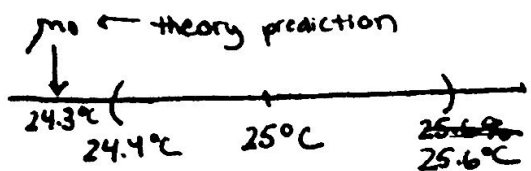 μ₀ ← theory prediction
24.3°C
24.4°C
25°C
25.6°C